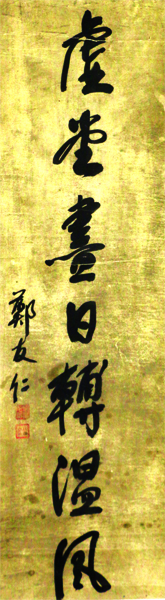 虛堂盡日轉溫風
鄭友仁